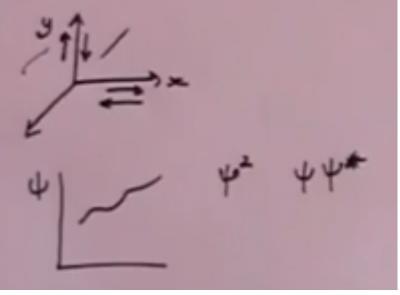 y
x
ψ ψ² ψψ*